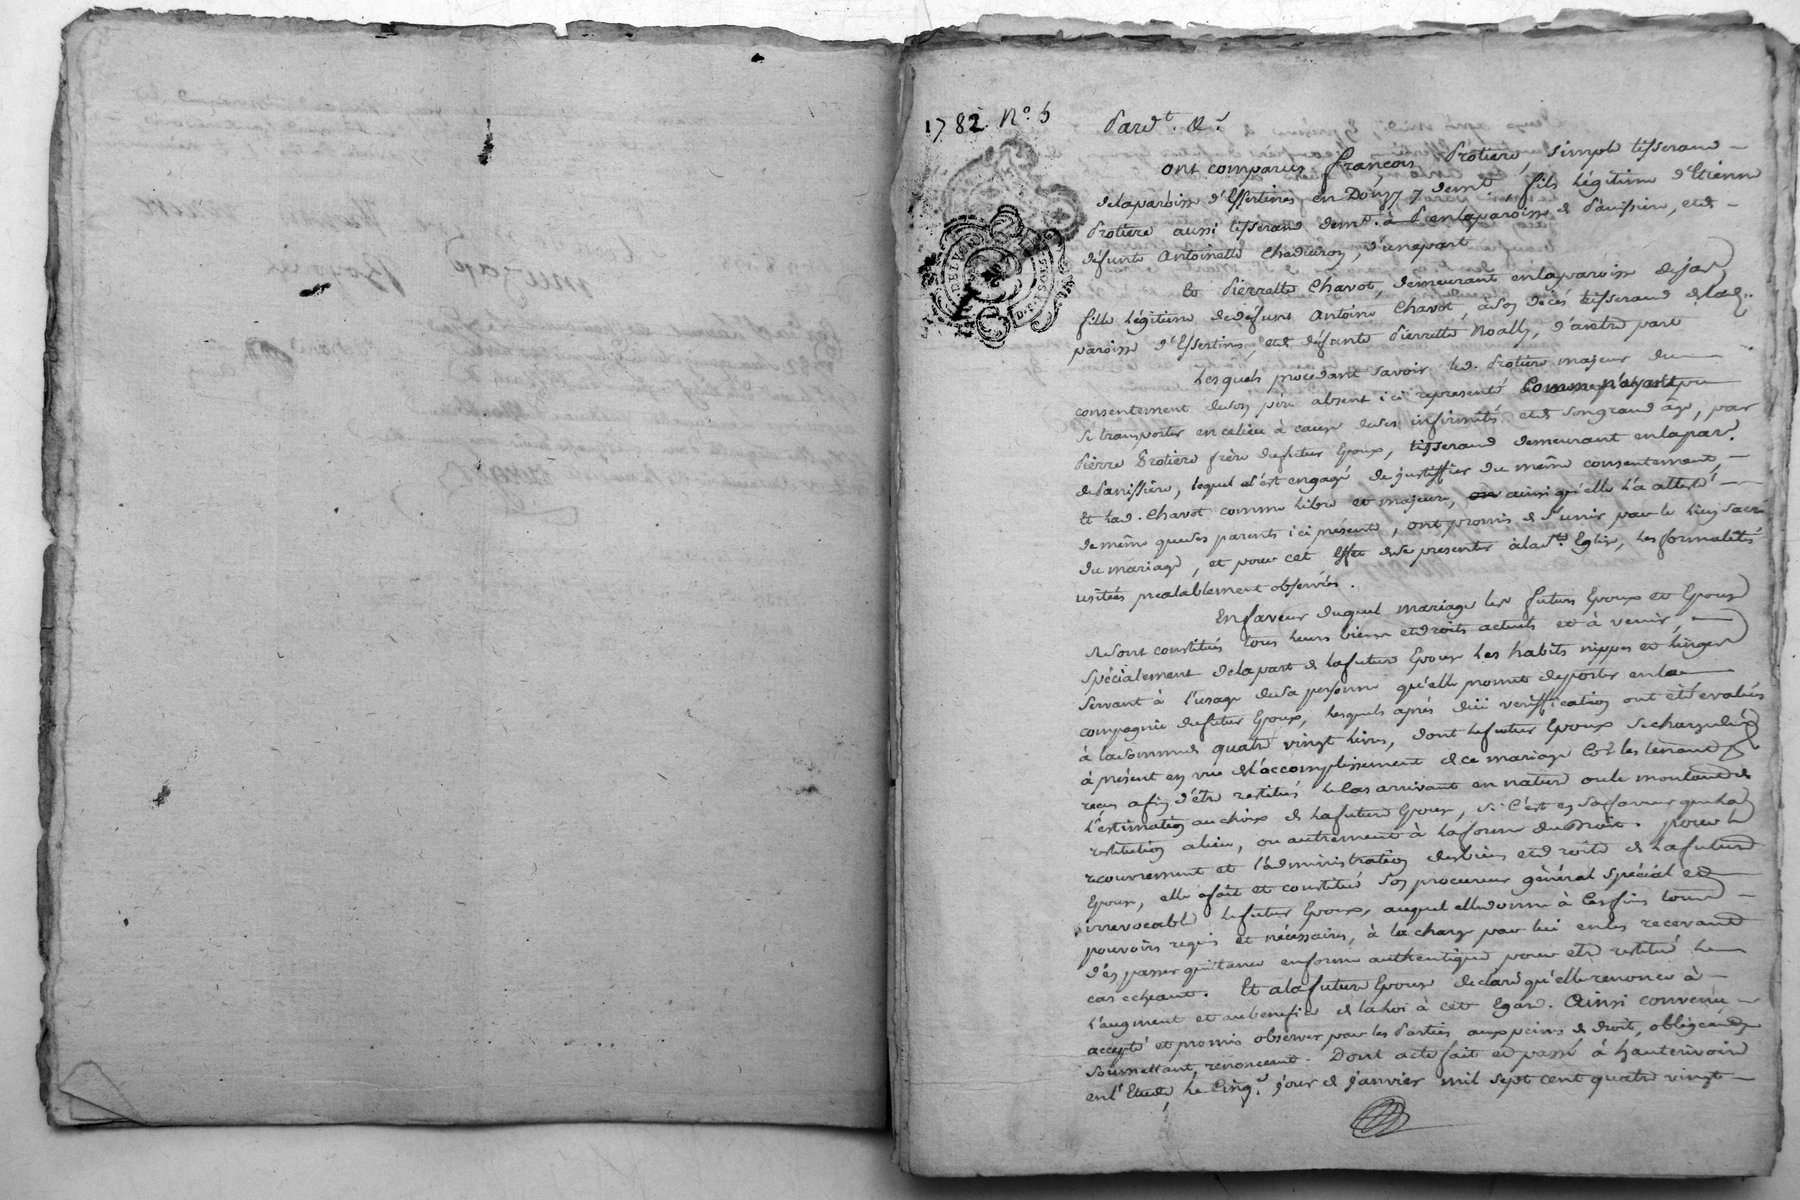 1782. N.º 5
Pard.t &.a
ont comparus françois Protiere, simple tisserand
de la paroisse d'Essertines en Donzy y demt. fils légitime d'Etienne
Protiere aussi tisserand demt. à de la paroisse de Panissiere, et de
defunte Antoinette Chaduiron, d'une part
Et Pierrette Chavot, demeurant en la paroisse de Jas,
fille légitime de defunt Antoine Chavot, à son décès tisserand de lad.
paroisse d'Essertines, et de défunte Pierrette Noally, d'autre part
Lesquels procédant savoir led. Protiere majeur du
consentement de son père absent ici representé comme n'ayant pu
se transporter en ce lieu à cause de ses infirmités et de son grand âge, par
Pierre Protiere frère du futur Epoux, tisserand demeurant en la par.
de Panissiere, lequel s'est engagé de justiffier du même consentement,
Et lad. Chavot comme libre et majeure, ainsi qu'elle l'a attesté
de même que ses parents ici présents, ont promis de s'unir par le lien sacré
du mariage, et pour cet effet de se presenter à la Ste. Eglise, les formalités
usitées prealablement observées.
En faveur duquel mariage les futurs Epoux et Epouse
se sont constitués tous leurs biens et droits actuels et à venir,
spécialement de la part de la future Epouse les habits nippes et linges
servant à l'usage de sa personne qu'elle promet de porter en la
compagnie du futur Epoux, lesquels après düe veriffication ont été evalués
à la somme de quatre vingt livres, dont le futur Epoux se charge dès
à présent en vue de l'accomplissement de ce mariage Et les tenant
reçus afin d'être restitués le cas arrivant en nature ou le montant de
l'estimation au choix de la future Epouse, si c'est en sa faveur que la
restitution a lieu, ou autrement à la forme du Droit. pour le
recouvrement et l'administration des biens et droits de la future
Epouse, elle a fait et constitué son procureur général spécial et
irrevocable le futur Epoux, auquel elle donne à ces fins tous
pouvoirs requis et nécessaires, à la charge par lui en les recevant
d'en passer quittance en forme authentique pour etre restitué le
cas echeant. Et a la future Epouse declaré qu'elle renonce à
l'augment et au benefice de la Loi à cet Egard. Ainsi convenu
accepté et promis observer par les Parties aux peines de droit, obligeant,
soumettant, renonceant. Dont acte fait et passé à hauterivoire
en l'Etude, le cinq.e jour de janvier mil sept cent quatre vingt